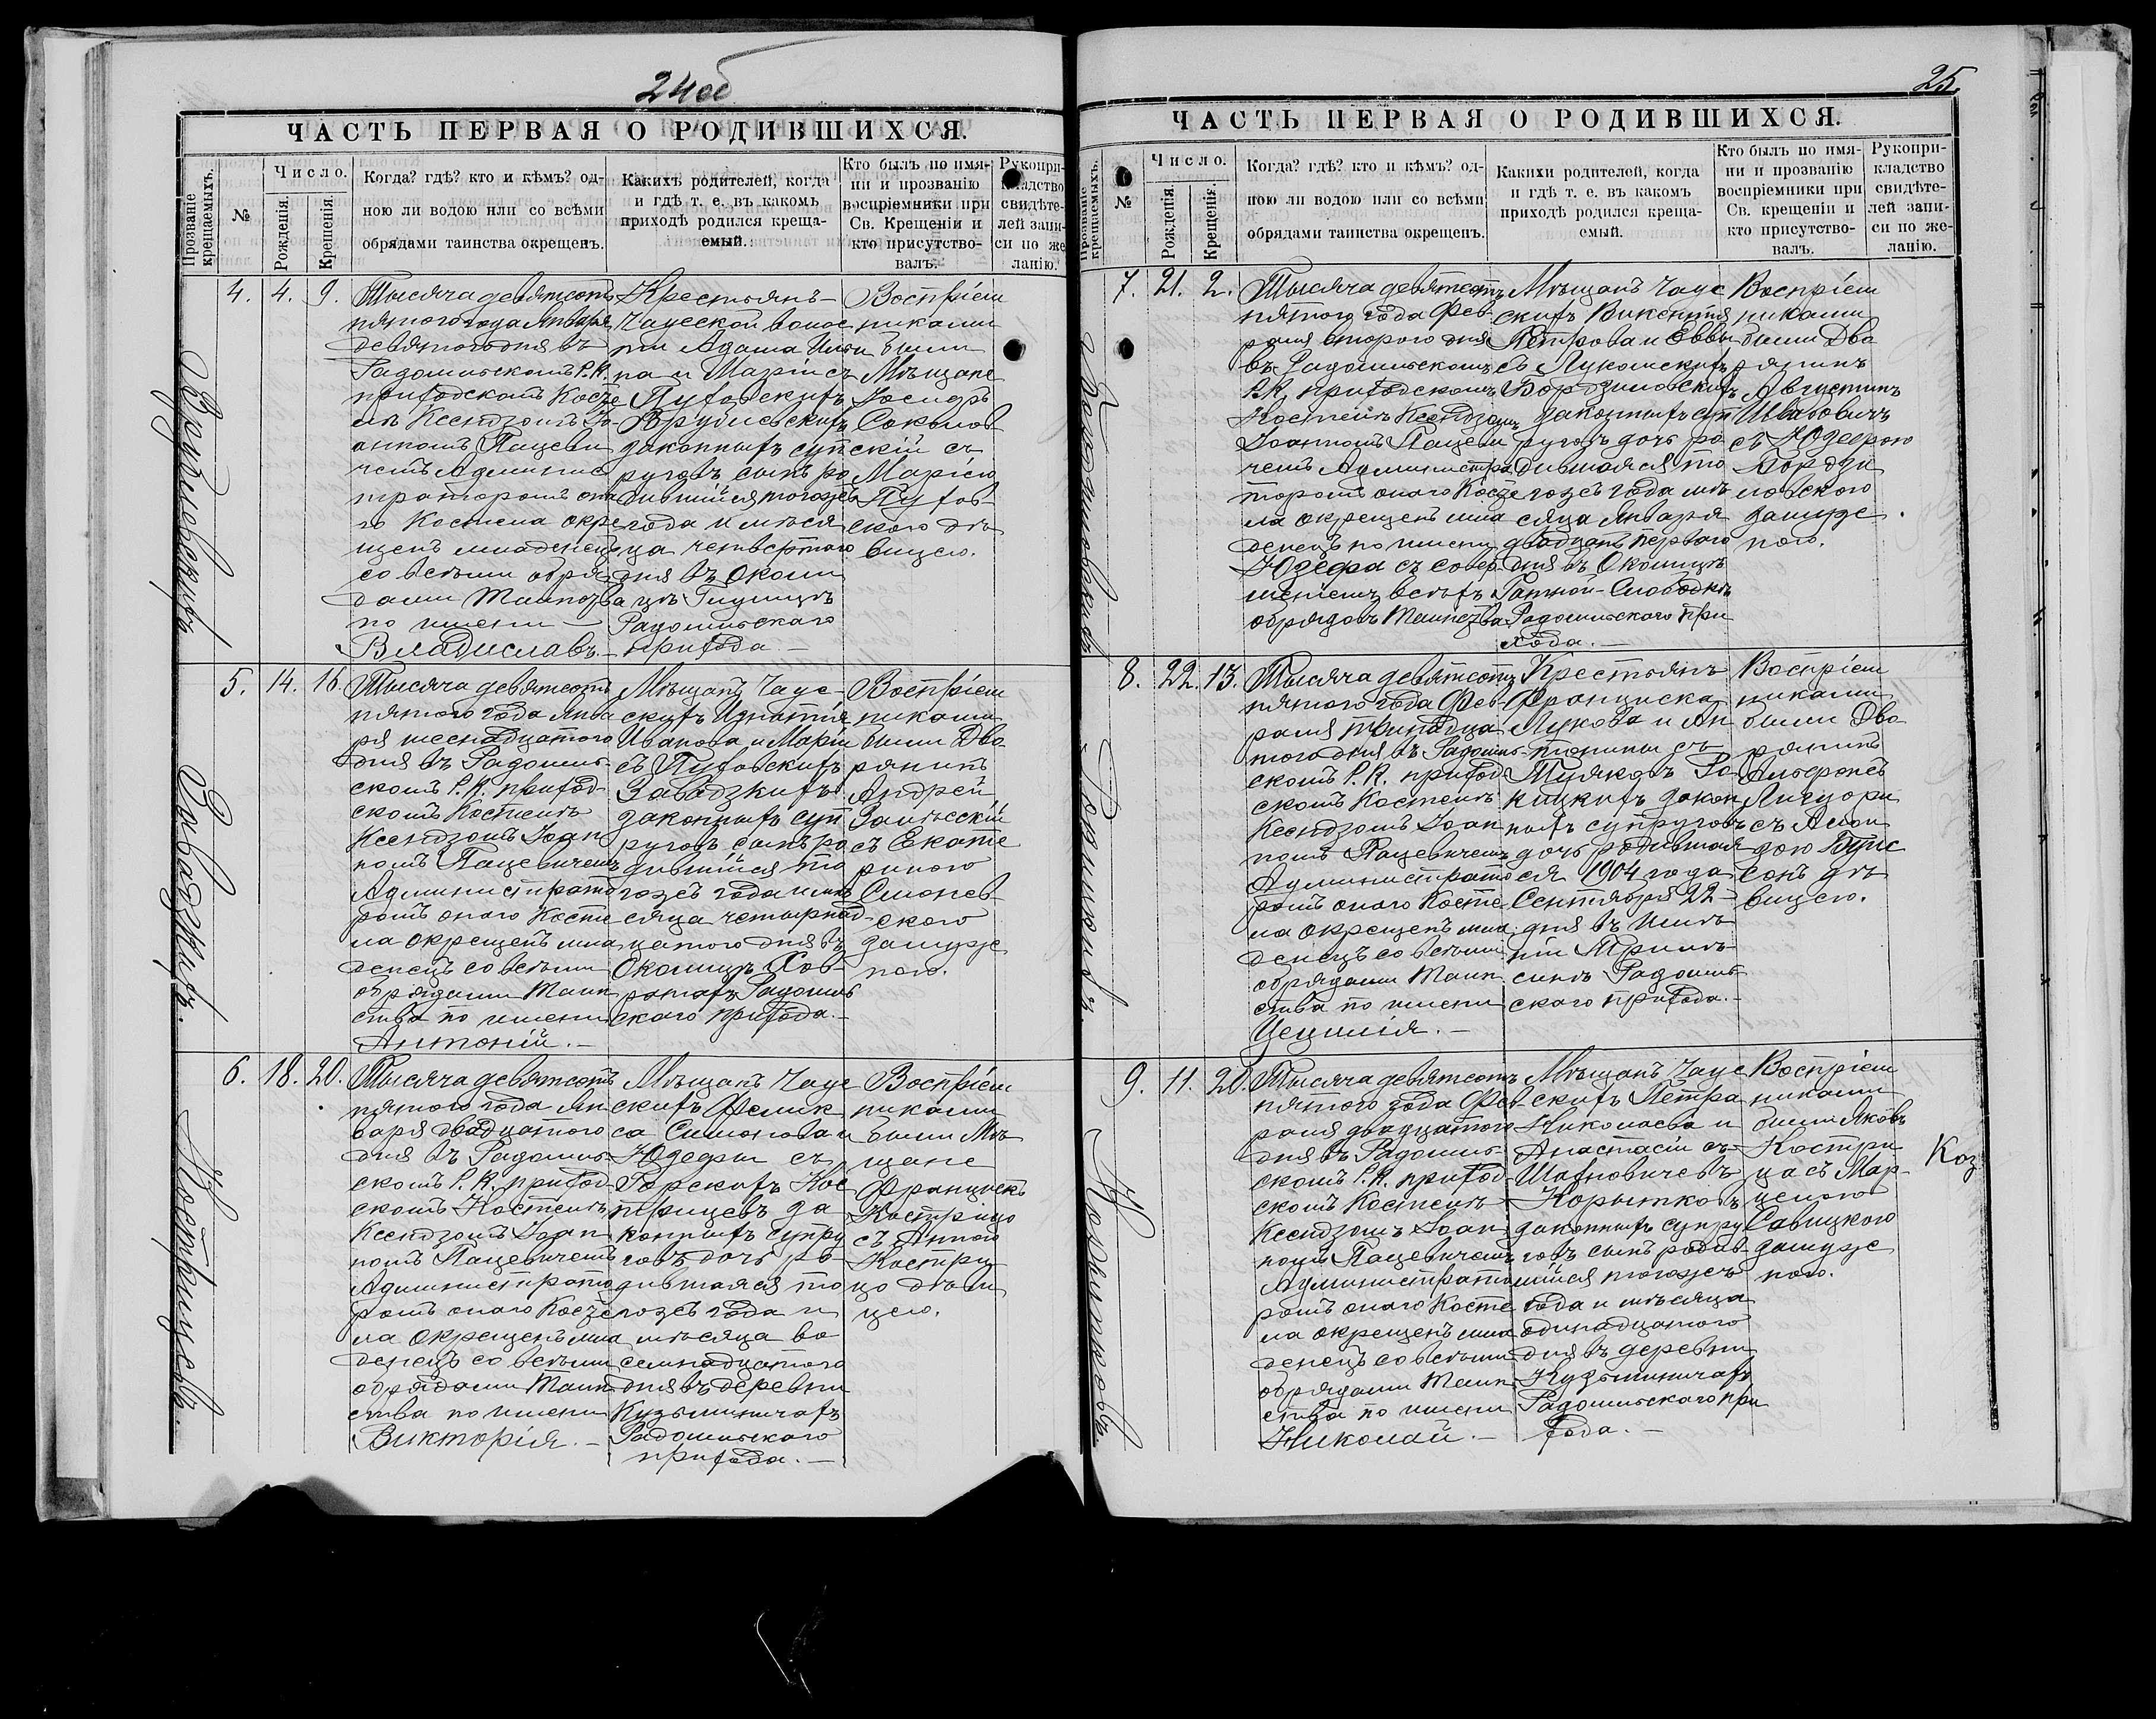 24об
ЧАСТЬ ПЕРВАЯ О РОДИВШИХСЯ.
Прозваніе крещаемыхъ.
№
Число.
Рожденія.
Крещенія.
Когда? гдѣ? кто и кѣмъ? од-
ною ли водою или со всѣми
обрядами таинства окрещенъ.
Какихъ родителей, когда
и гдѣ т. е. въ какомъ
приходѣ родился креща-
емый.
Кто былъ по имя-
ни и прозванію
воспріемники при
Св. Крещеніи и
кто присутство-
валъ.
Рукопри-
кладство
свидѣте-
лей запи-
си по же-
ланію.
4. 4. 9.
Тысяча девятсотъ
пятого года Января
девятого дня въ
Радомльскомъ Р. К.
приходскомъ Косте
лѣ Ксендзомъ Іо-
анномъ Пацеви
чемъ Админис
траторомъ она
го Костела окре
щенъ младенецъ
со всѣми обря-
дами Таинства
по имени —
Владиславъ. —
Крестьянъ —
Чаусской волос
ти Адама Ильи
на и Маріи съ
Пуховскихъ
Врублевскихъ
законныхъ суп
руговъ сынъ ро
дившійся тогожъ
года и мѣся
ца четвертого
дня въ Околи
цѣ
Радомльскаго
прихода —
Воспріем
никами
были
Мѣщане
Іосифъ
Соколов
скій съ
Маріею
Пухов-
скою дѣ
вицею.
5. 14. 16.
Завадзкихъ.
Тысяча девятсотъ
пятого года Янва
ря шеснадцатого
дня въ Радомль-
скомъ Р. К. приход-
скомъ Костелѣ
Ксендзомъ Іоан
номъ Пацевичемъ
Администрато
ромъ оного Косте
ла окрещенъ мла
денецъ со всѣми
обрядами Таин
ства по имени
Антоній. —
Мѣщанъ Чаус-
скихъ Игнатія
Иванова и Маріи
съ Пуховскихъ
Завадзкихъ
законныхъ суп
руговъ сынъ ро
дившійся то
гожъ года и мѣ
сяца четырнад-
цатого дня въ
Околицѣ Хов-
рахъ Радомль
скаго прихода. —
Воспріем
никами
были Дво
рянинъ
Андрей
Залѣсскій
съ Екате
риною
замуж
ною.
6. 18. 20.
Костриковъ.
Тысяча девятсотъ
пятого года Ян
варя двадцатого
дня въ Радомль-
скомъ Р. К. приход-
скомъ Костелѣ
Ксендзомъ Іоан
номъ Пацевичемъ
Администрато
ромъ оного Косте
ла окрещенъ мла
денецъ со всѣми
обрядами Таин
ства по имени
Викторія. —
Мѣщанъ Чаус
скихъ Фелик
са Симонова и
Юзефы съ
Горскихъ Кос
трицевъ за
конныхъ супру
говъ дочь ро
дившаяся то
гожъ года и
мѣсяца во
семнадцатого
дня въ деревни
Кузьминичахъ
Радомльскаго
прихода. —
Воспріем
никами
были Мѣ
щане
Францискъ
Кострицо
съ Анною
Костри
цо дѣви
цею.
25.
ЧАСТЬ ПЕРВАЯ О РОДИВШИХСЯ.
Прозваніе крещаемыхъ.
№
Число.
Рожденія.
Крещенія.
Когда? гдѣ? кто и кѣмъ? од-
ною ли водою или со всѣми
обрядами таинства окрещенъ.
Какихи родителей, когда
и гдѣ т. е. въ какомъ
приходѣ родился креща-
емый.
Кто былъ по имя-
ни и прозванію
воспріемники при
Св. крещеніи и
кто присутство-
валъ.
Рукопри-
кладство
свидѣте-
лей запи-
си по же-
ланію.
7. 21. 2.
Тысяча девятсотъ
пятого года Фев-
раля второго дня
въ Радомльскомъ
Р. К. приходскомъ
Костелѣ Ксендзомъ
Іоанномъ Пацеви
чемъ Администра
торомъ оного Косте
ла окрещенъ мла
денецъ по имени
Юзефа съ совер
шеніемъ всѣхъ
обрядовъ Таинства
Мѣщанъ Чаус
скихъ Викентія
Петрова и Еввы
съ Лукомскихъ
Бордзиловскихъ
законныхъ суп
руговъ дочь ро
дившаяся то
гожъ года мѣ
сяца Января
двадцать перваго
дня въ Околицѣ
Слободкѣ
Радомльскаго при
хода. —
Воспріем
никами
были Дво
рянинъ
Августинъ
съ Юзефою
Бордзи
ловского
замуж
ною.
8. 22. 13.
Тысяча девятсотъ
пятого года Фев-
раля тринадца
того дня въ Радомль-
скомъ Р. К. приход
скомъ Костелѣ
Ксендзомъ Іоан
номъ Пацевичемъ
Администрато
ромъ оного Косте
ла окрещенъ мла
денецъ со всѣми
обрядами Таин
ства по имени
Цецилія. —
Крестьянъ
Франциска
Лукова и Ан
тонины съ
законъ
ныхъ супруговъ
дочь родившая
ся 1904 года
Сентября 22 —
дня въ имѣ
ніи
Радомль
скаго прихода. —
Воспріем
никами
были Дво
рянинъ
дѣ
вицею.
9. 11. 20.
Тысяча девятсотъ
пятого года Фев-
раля двадцатого
дня въ Радомль-
скомъ Р. К. приход-
скомъ Костелѣ
Ксендзомъ Іоан
номъ Пацевичемъ
Администрато
ромъ оного Косте
ла окрещенъ мла
денецъ со всѣми
обрядами Таин
ства по имени
Николай. —
Мѣщанъ Чаус
скихъ Петра
Николаева и
Анастасіи съ
Корытковъ
законныхъ супру
говъ сынъ родив-
шійся тогожъ
года и мѣсяца
одинадцатого
дня въ деревни
Кузьминичахъ
Радомльскаго при
хода. —
Воспріем
никами
были Яковъ
Костри
ца съ Мар-
целею
Савицкого
замуж
ною.
Коз